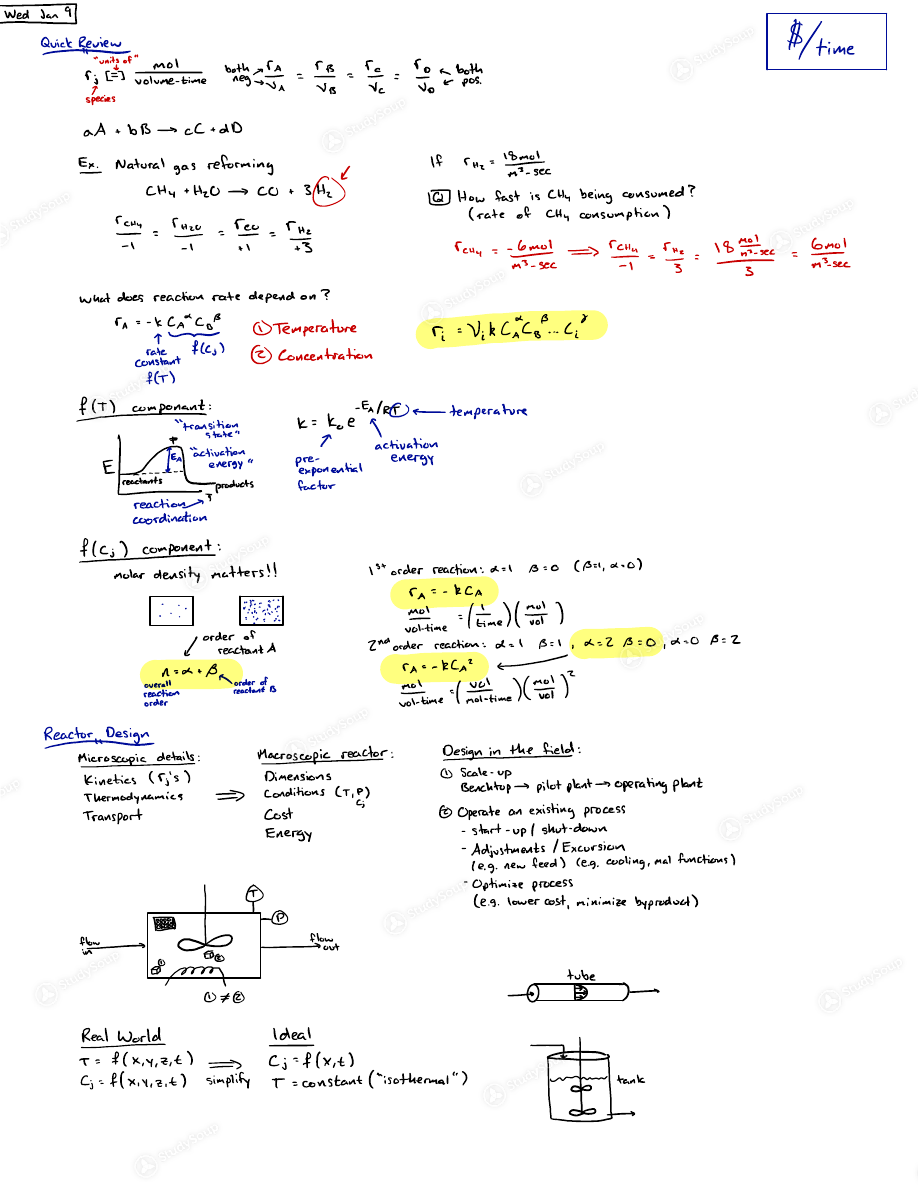 Wed Jan 9
$/time
Quick Review
"units of"
r_j [=] mol / volume-time
species
both neg. r_A/ν_A = r_B/ν_B = r_C/ν_C = r_D/ν_D both pos.
aA + bB → cC + dD
Ex. Natural gas reforming
CH4 + H2O → CO + 3H2
r_CH4/-1 = r_H2O/-1 = r_CO/+1 = r_H2/+3
If r_H2 = 18mol/m³-sec
Q How fast is CH4 being consumed?
(rate of CH4 consumption)
r_CH4 = -6mol/m³-sec ⟹ r_CH4/-1 = r_H2/3 = 18 mol/m³-sec / 3 = 6mol/m³-sec
What does reaction rate depend on?
r_A = -k C_A^α C_B^β
rate constant
f(T)
f(C_j)
① Temperature
② Concentration
r_i = ν_i k C_A^α C_B^β ... C_i^γ
f(T) componant:
"transition state"
‡
E
E_A
"activation energy"
reactants
products
reaction coordination
ξ
k = k_o e^(-E_A/RT) ← temperature
pre-exponential factor
activation energy
f(C_j) component:
molar density matters!!
order of reactant A
n = α + β
overall reaction order
order of reactant B
1st order reaction: α=1 β=0 (β=1, α=0)
r_A = -kC_A
mol/vol-time = (1/time)(mol/vol)
2nd order reaction: α=1 β=1, α=2 β=0, α=0 β=2
r_A = -kC_A²
mol/vol-time = (vol/mol-time)(mol/vol)²
Reactor Design
Microscopic details:
Kinetics (r_j's)
Thermodynamics
Transport
⟹
Macroscopic reactor:
Dimensions
Conditions (T, P)
C_j
Cost
Energy
Design in the field:
① Scale-up
Benchtop → pilot plant → operating plant
② Operate an existing process
- start-up / shut-down
- Adjustments / Excursion
(e.g. new feed) (e.g. cooling, mal functions)
- Optimize process
(e.g. lower cost, minimize byproduct)
T
P
flow in
flow out
①
②
① ≠ ②
tube
tank
Real World
T = f(x,y,z,t)
C_j = f(x,y,z,t)
⟹
simplify
Ideal
C_j = f(x,t)
T = constant ("isothermal")
StudySoup